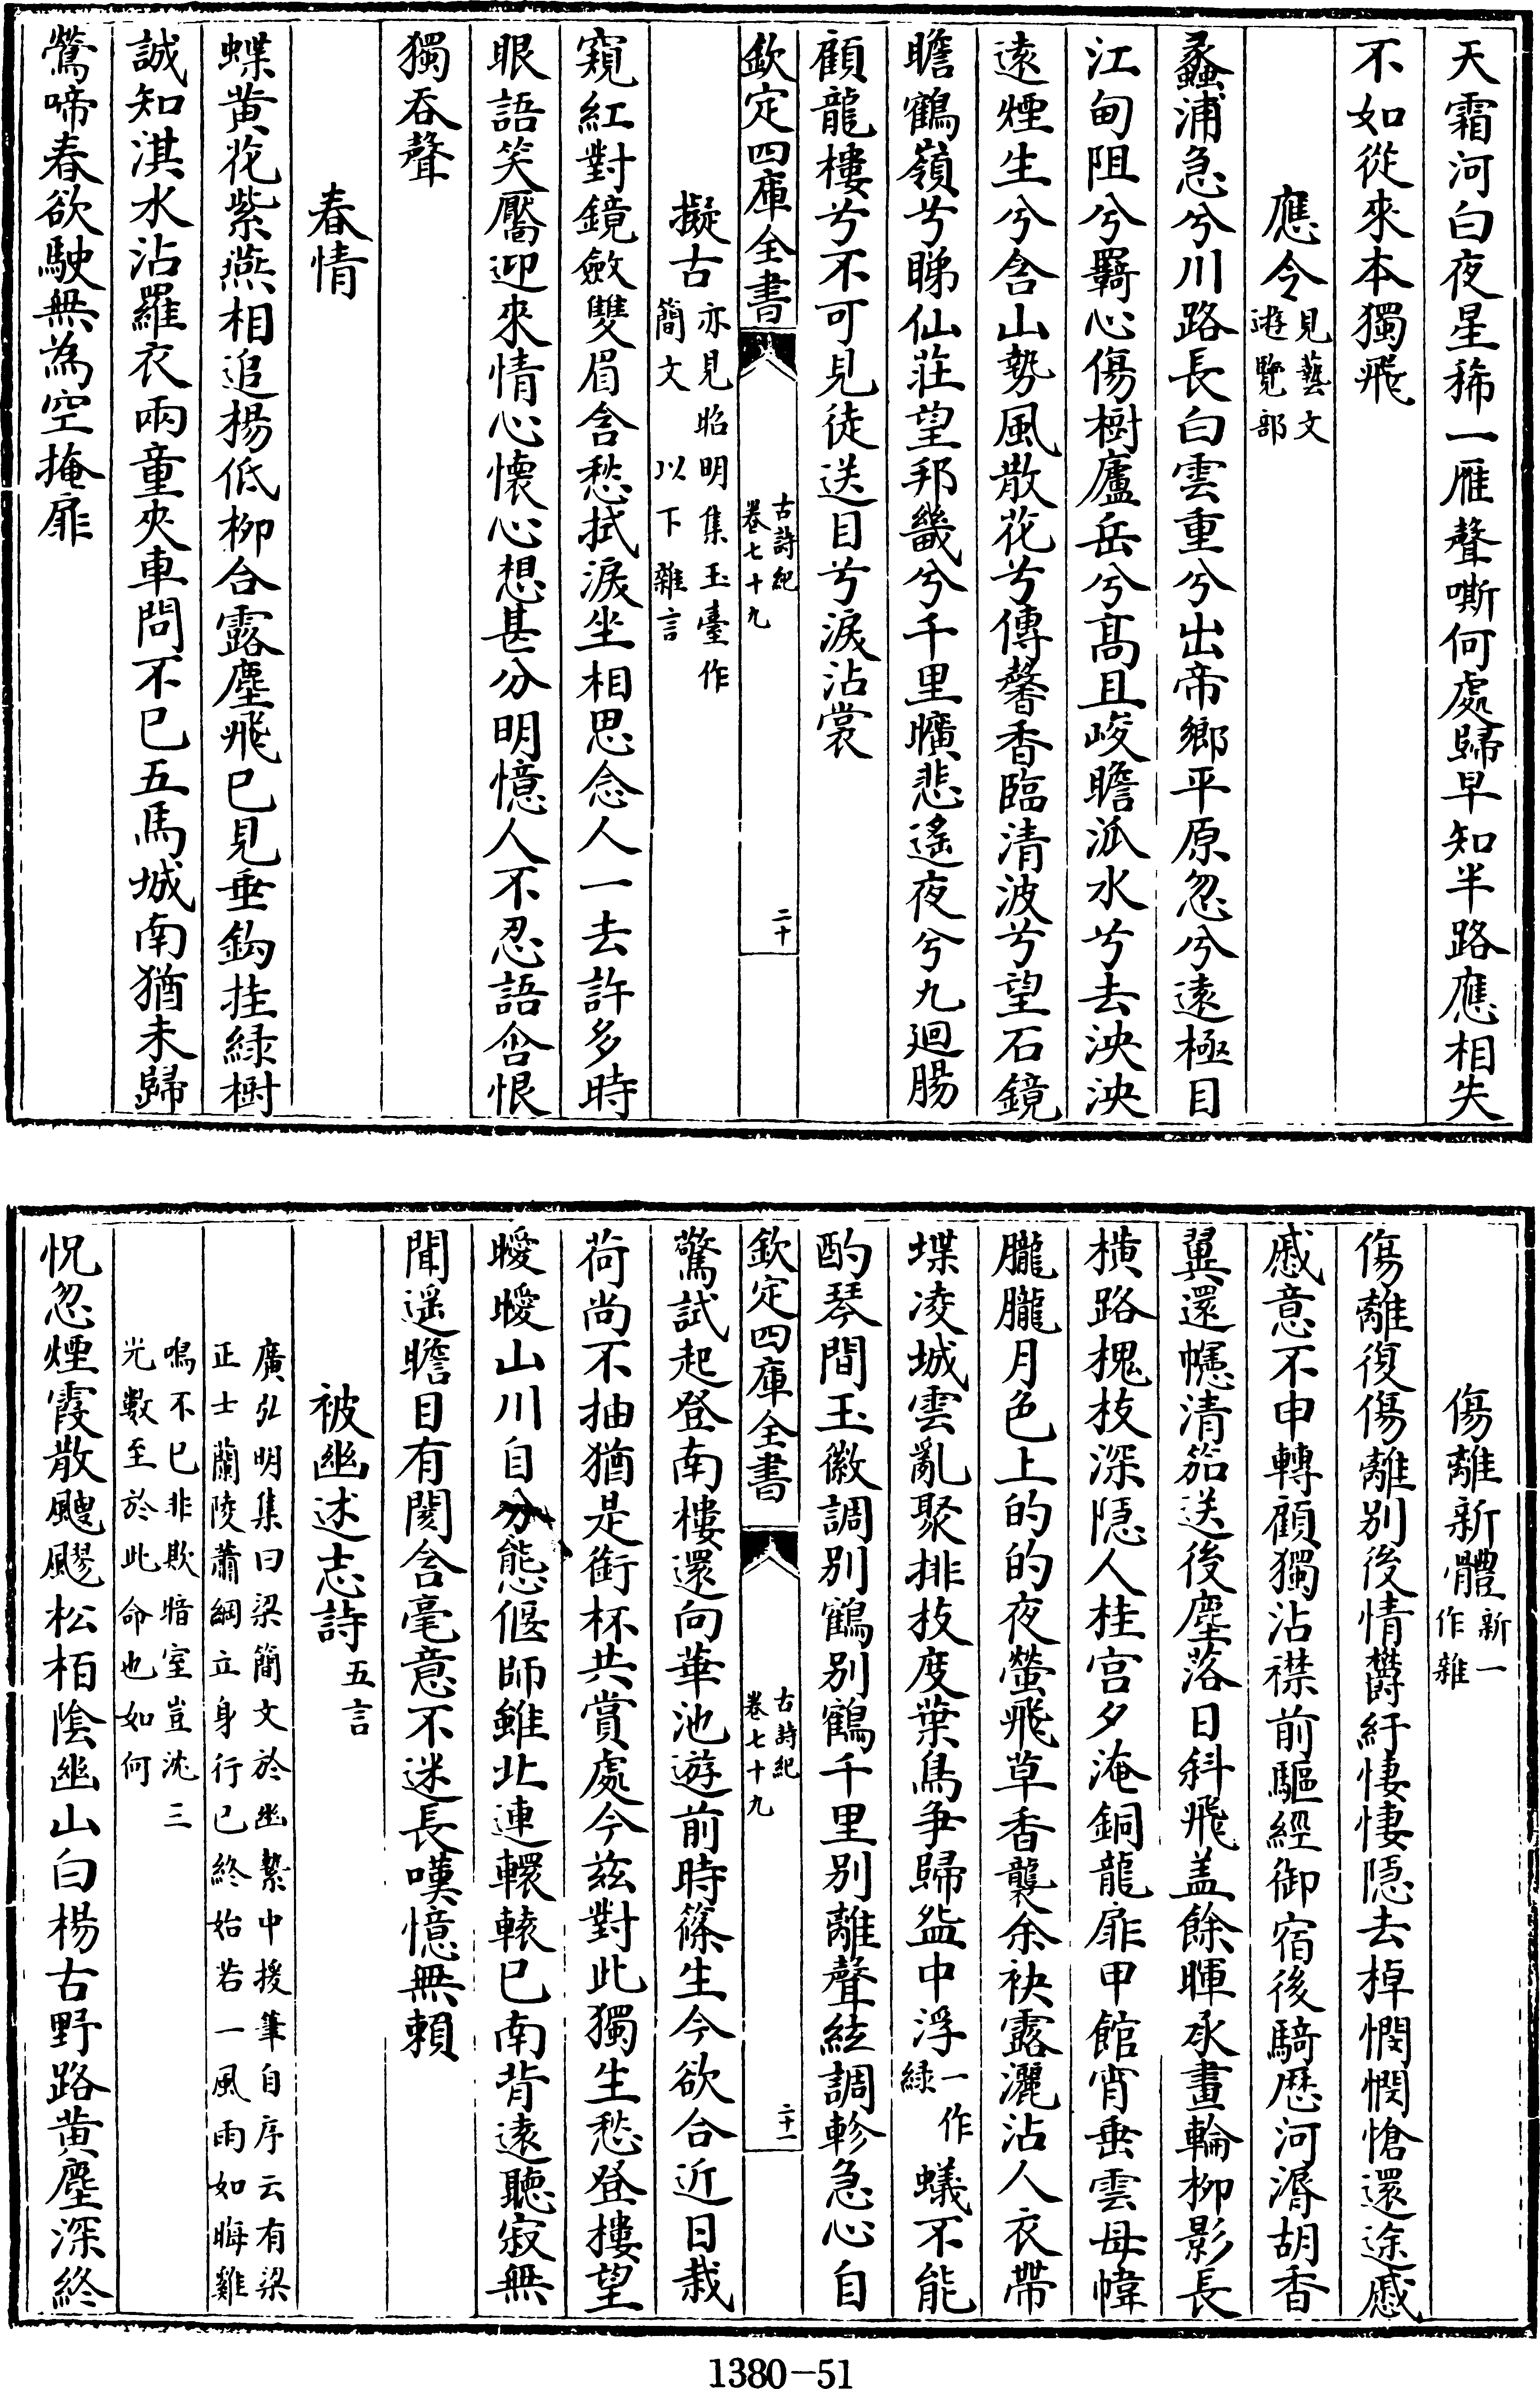 天霜河白夜星稀一雁聲嘶何處歸早知半路應相失
不如從來本獨飛
應令見藝文
遊覽部
蠡浦急兮川路長白雲重兮出帝鄉平原忽兮遠極目
江甸阻兮羇心傷樹廬岳兮髙且峻瞻派水兮去泱泱
遠煙生兮含山勢風散花兮傳馨香臨清波兮望石鏡
瞻鶴嶺兮睇仙莊望邦畿兮千里曠悲遙夜兮九廻腸
顧龍樓兮不可見徒送目兮淚沾裳
欽定四庫全書
古詩紀
卷七十九
二十
擬古亦見昭明集玉臺作
簡文 以下雜言
窺紅對鏡斂雙眉含愁拭淚坐相思念人一去許多時
眼語笑靨迎來情心懷心想甚分明憶人不忍語含恨
獨吞聲
春情
蝶黄花紫燕相追楊低柳合露塵飛已見垂鈎挂緑樹
誠知淇水沾羅衣兩童夾車問不已五馬城南猶未歸
鶯啼春欲駛無為空掩扉
傷離新體新一
作雜
傷離復傷離别後情鬱紆悽悽隠去棹憫憫愴還途慼
慼意不申轉顧獨沾襟前驅經御宿後騎歴河漘胡香
翼還幰清笳送後塵落日斜飛盖餘暉承畫輪柳影長
横路槐枝深隠人桂宫夕淹銅龍扉甲館宵垂雲母幃
朧朧月色上的的夜螢飛草香襲余袂露灑沾人衣帶
堞凌城雲亂聚排枝度葉鳥爭歸盎中浮一作
緑蟻不能
酌琴間玉徽調别鶴别鶴千里别離聲絃調軫急心自
欽定四庫全書
古詩紀
卷七十九
二十一
驚試起登南樓還向華池遊前時篠生今欲合近日栽
荷尚不抽猶是銜杯共賞處今兹對此獨生愁登樓望
曖曖山川自分態偃師雖北連轘轅已南背遠聽寂無
聞遥瞻目有閡含毫意不迷長嘆憶無賴
被幽述志詩五言
廣弘明集曰梁簡文於幽縶中援筆自序云有梁
正士蘭陵蕭綱立身行已終始若一風雨如晦雞
鳴不已非欺暗室豈沈三
光數至於此命也如何
怳忽煙霞散颼飀松栢陰幽山白楊古野路黄塵深終
1380-51